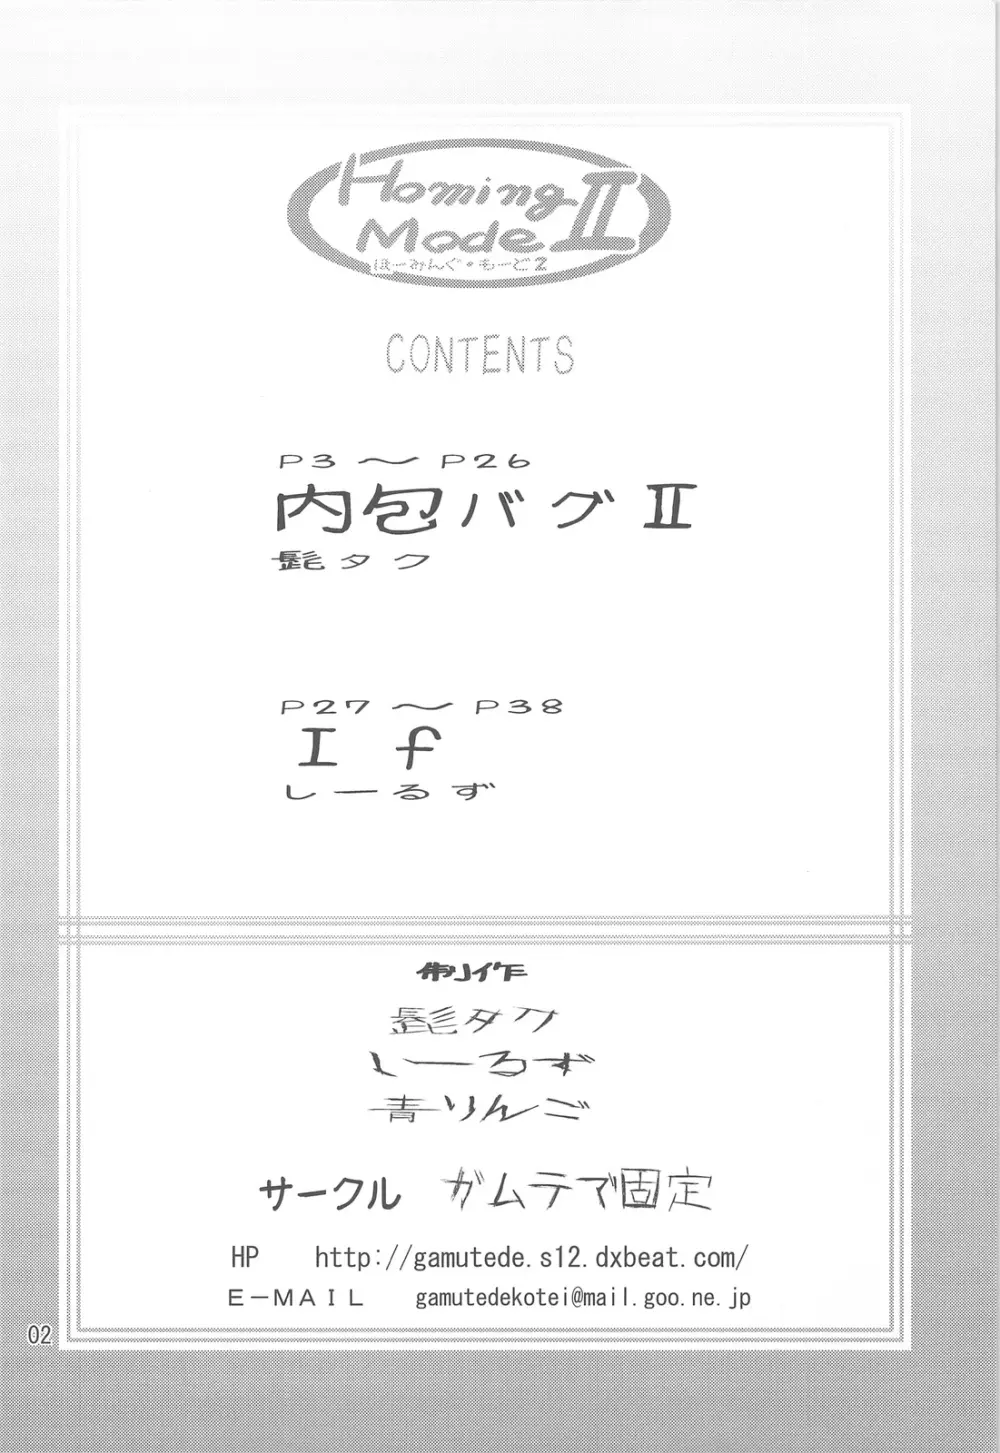 Homing
Mode II
ほーみんぐ・もーど2
CONTENTS
P3〜P26
内包バグⅡ
髭タク
P27〜P38
If
しーるず
制作
髭タク
しーるず
青りんご
サークル ガムテデ固定
HP http://gamutede.s12.dxbeat.com/
E-MAIL gamutedekotei@mail.goo.ne.jp
02